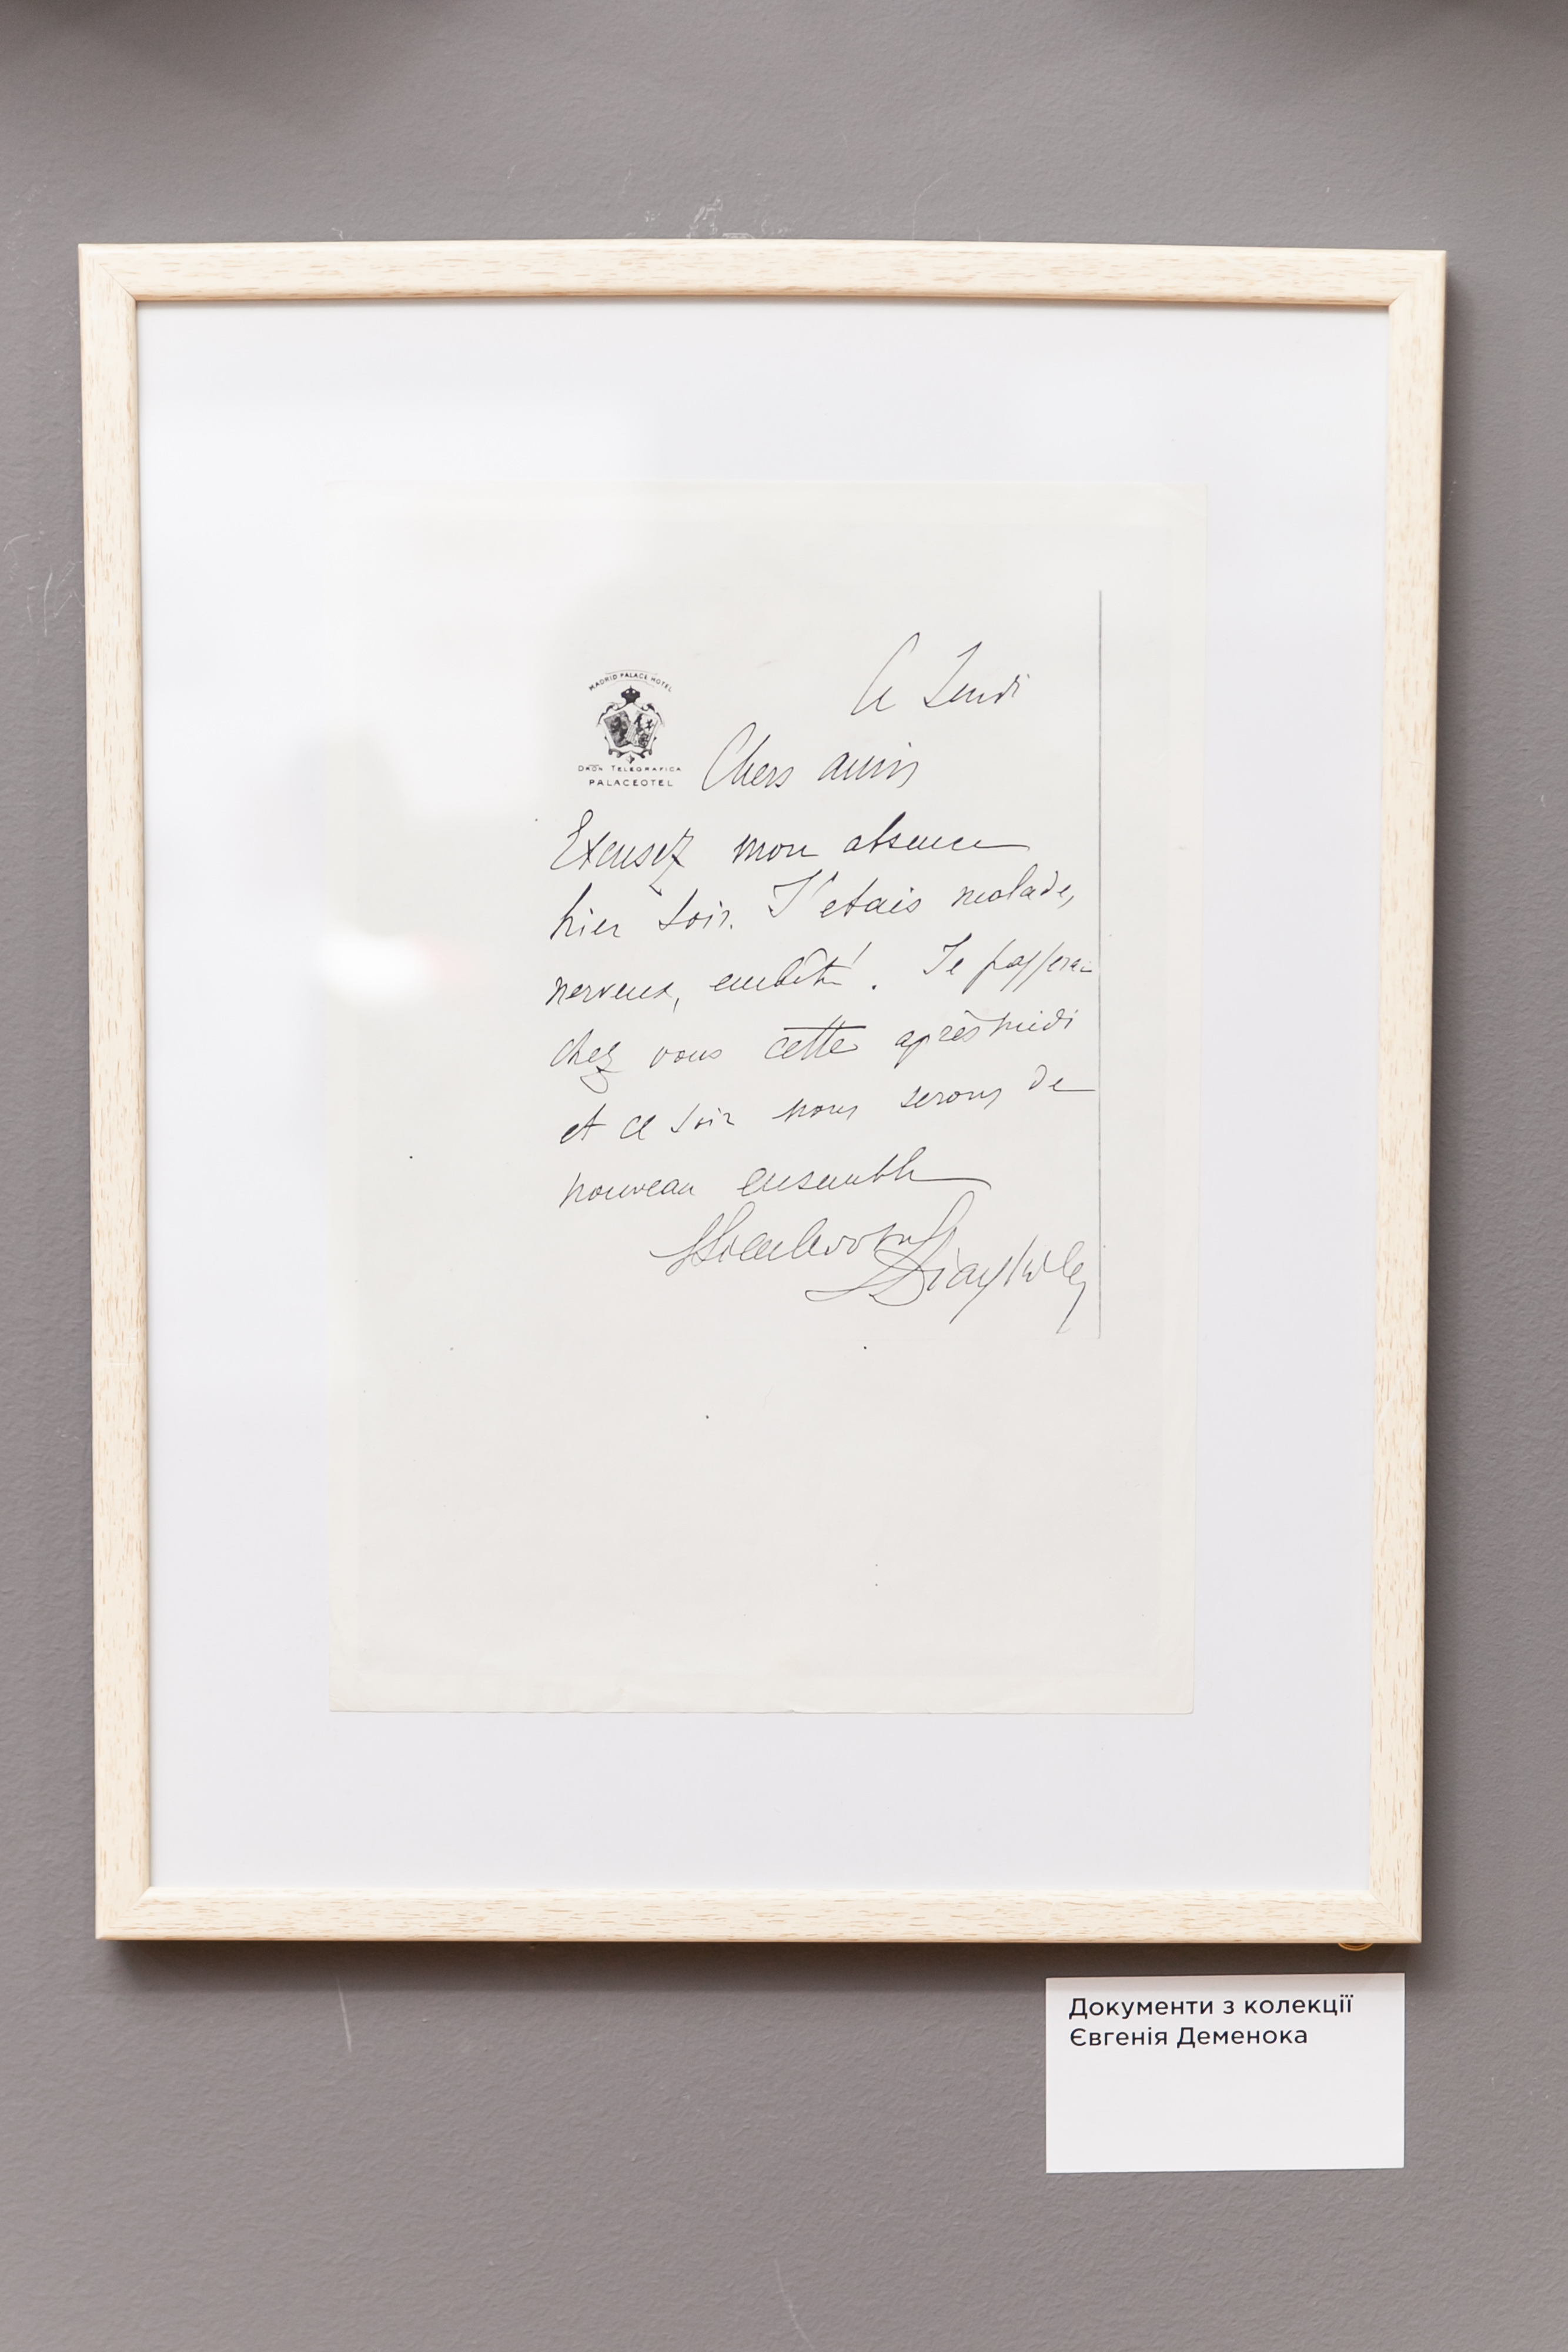 MADRID PALACE HOTEL
DRÓN TELEGRAFICA
PALACEOTEL
Ce
Chers amis
Excusez mon absence
hier soir. J'etais malade,
nerveux, embêté. Je passerai
chez vous cette après midi
et ce soir nous serons de
nouveau ensemble
Документи з колекції
Євгенія Деменока